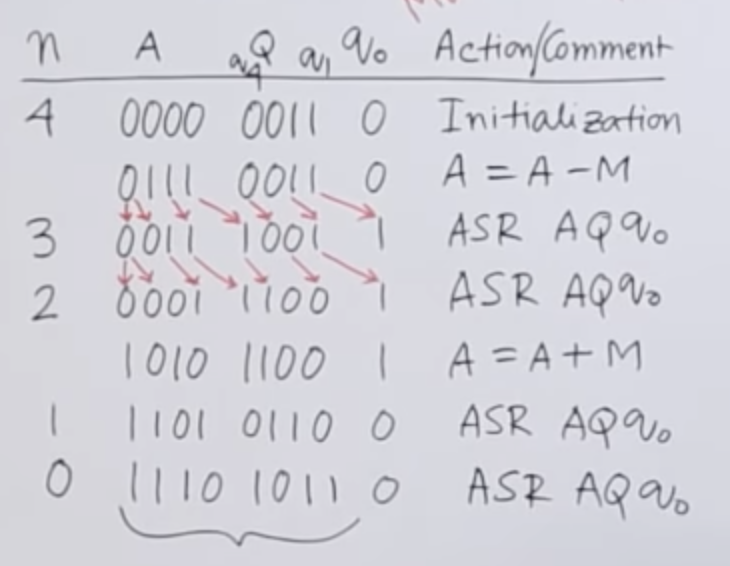 n A q4 Q q1 q0 Action/Comment
4 0000 0011 0 Initialization
0111 0011 0 A = A - M
3 0011 1001 1 ASR AQq0
2 0001 1100 1 ASR AQq0
1010 1100 1 A = A + M
1 1101 0110 0 ASR AQq0
0 1110 1011 0 ASR AQq0